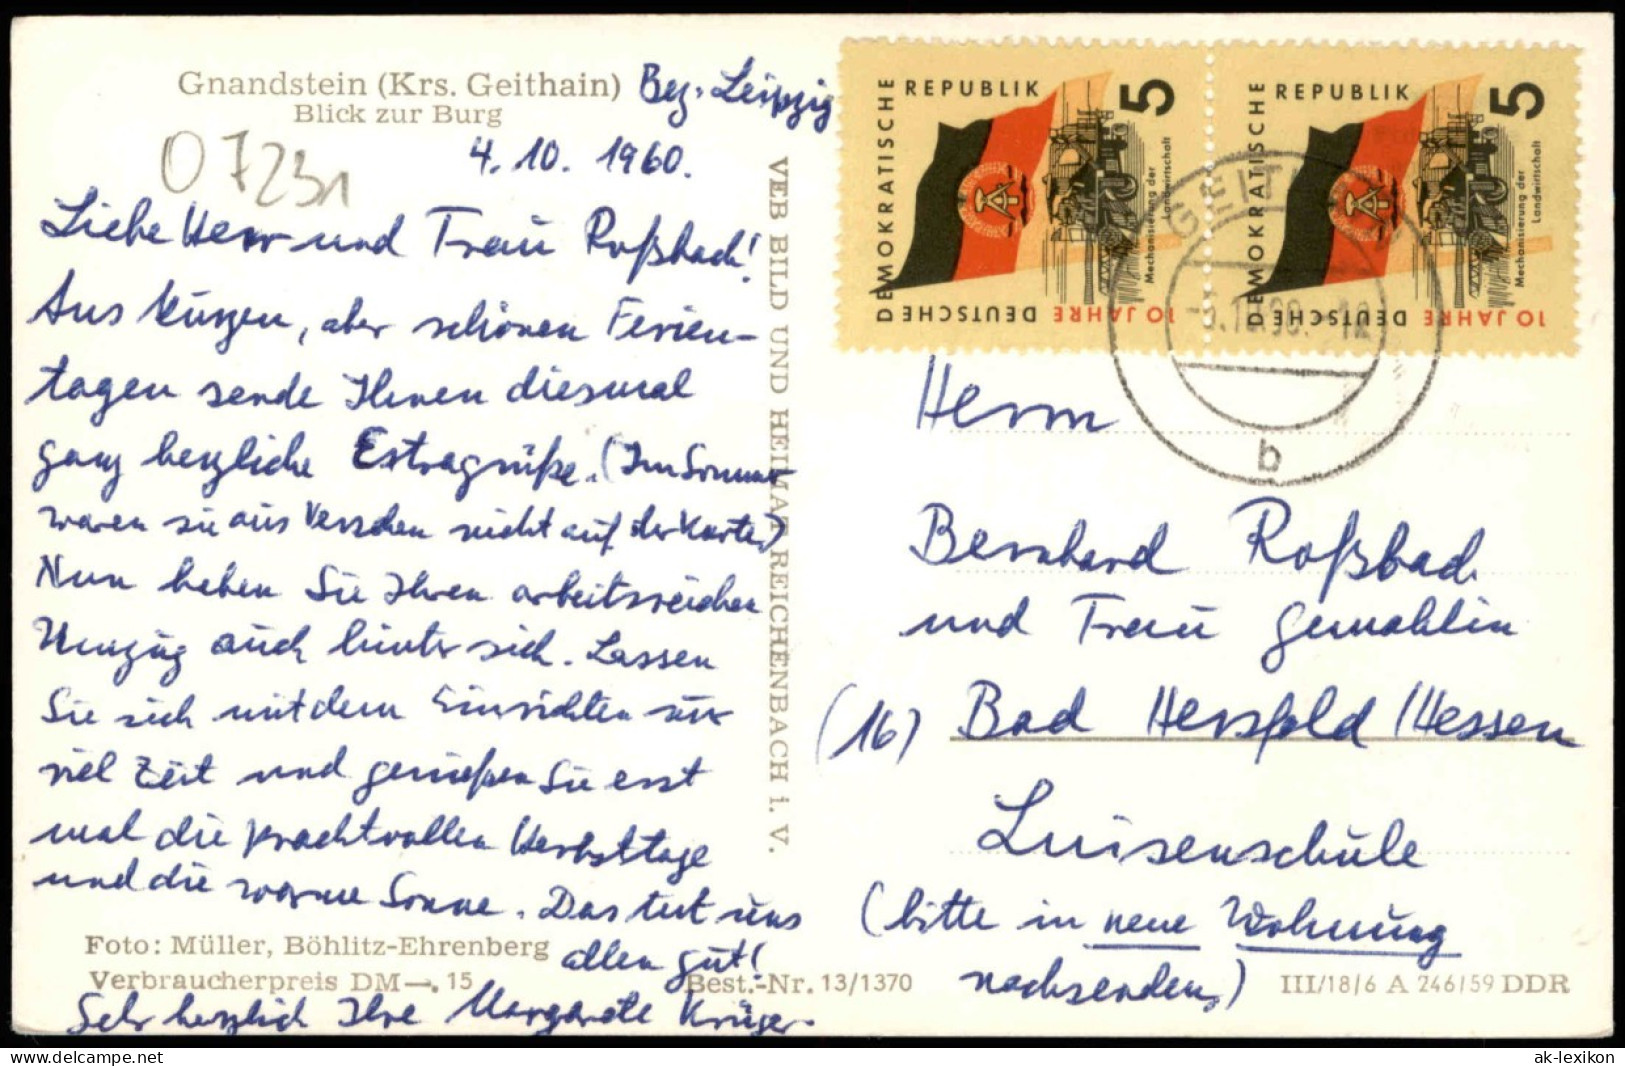 Gnandstein (Krs. Geithain) Bez. Leipzig
Blick zur Burg
4. 10. 1960.
07231
Liebe Herr und Frau Roßbach!
Aus kurzen, aber schönen Ferien-
tagen sende Ihnen diesmal
ganz herzliche Extragrüße. (Im Sommer
waren sie aus Versehen nicht auf der Karte.)
Nun haben Sie Ihren arbeitsreichen
Umzug auch hinter sich. Lassen
Sie sich mit dem Einrichten nur
viel Zeit und genießen Sie erst
mal die prachtvollen Herbsttage
und die warme Sonne. Das tut uns
allen gut!
Sehr herzlich Ihre Margarete Krüger.
Foto: Müller, Böhlitz-Ehrenberg
Verbraucherpreis DM —.15
Best.-Nr. 13/1370
III/18/6 A 246/59 DDR
VEB BILD UND HEIMAT REICHENBACH i. V.
10 JAHRE DEUTSCHE DEMOKRATISCHE REPUBLIK
5
Mechanisierung der
Landwirtschaft
10 JAHRE DEUTSCHE DEMOKRATISCHE REPUBLIK
5
Mechanisierung der
Landwirtschaft
b
Herrn
Bernhard Roßbach
und Frau Gemahlin
(16) Bad Hersfeld/Hessen
Luisenschule
(bitte in neue Wohnung
nachsenden)
ak-lexikon